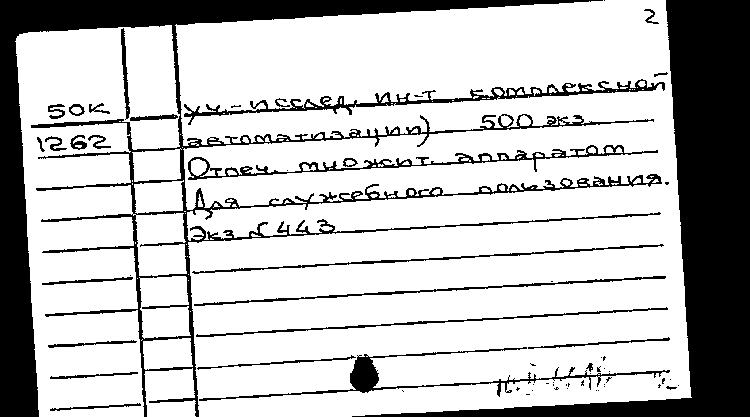 2
50К уч.-исслед. ин-т комплексной
1262 автоматизации) 500 экз.
Отпеч. множит. аппаратом
Для служебного пользования.
Экз N 443